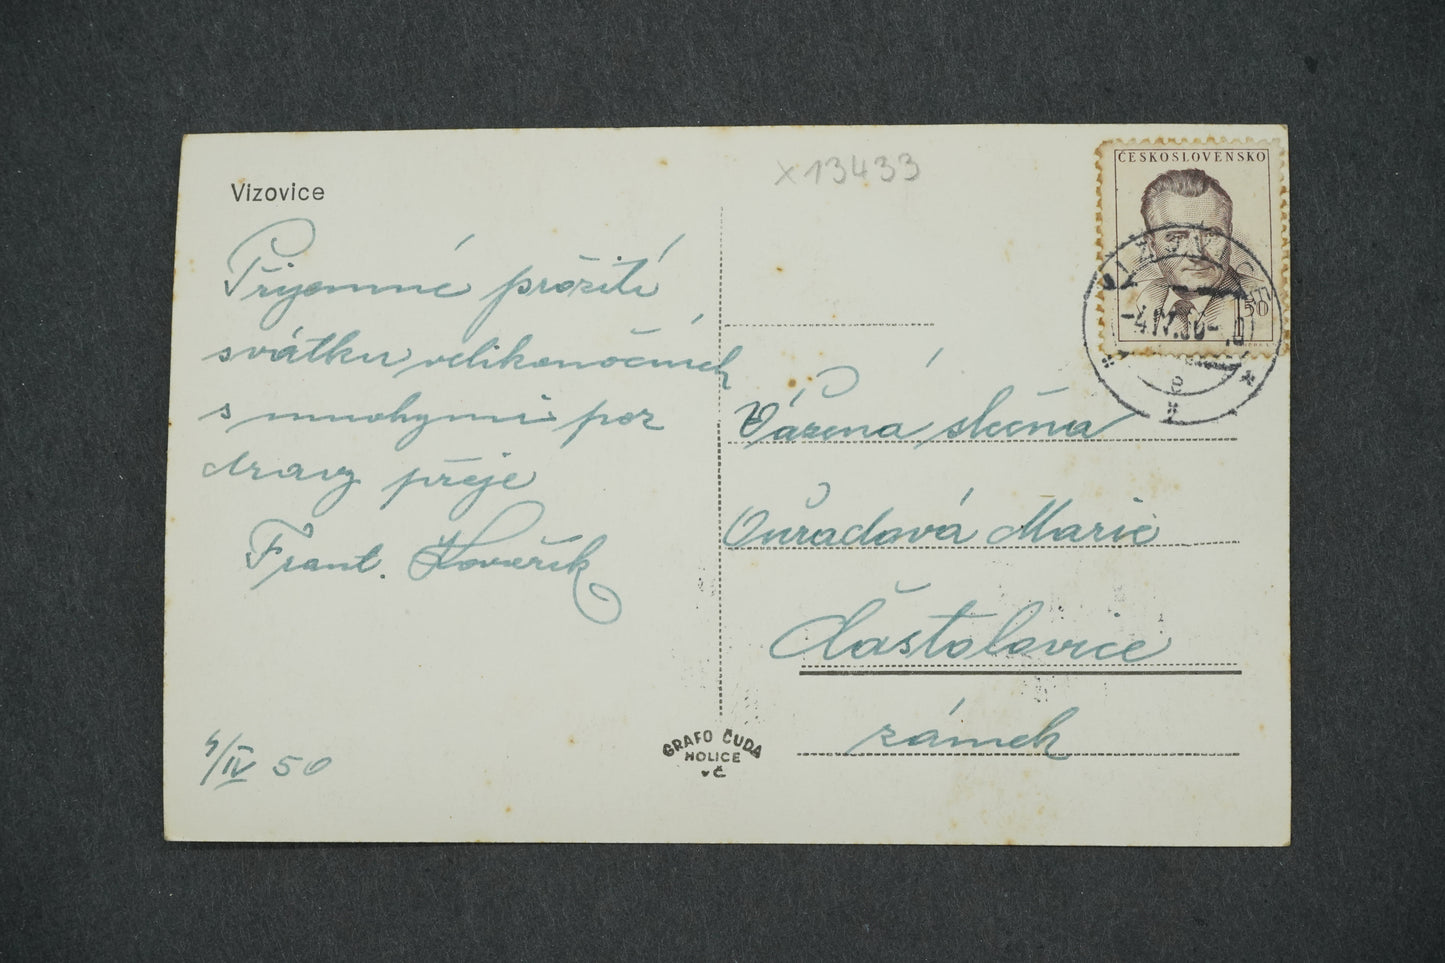 Vizovice
x 13433
ČESKOSLOVENSKO
1.50
Přijemné prožití
svátku velikonočních
s mnohými poz
dravy přeje
Frant. Kovařík
4/IV 50
Vážena slečna
Ouřadová Marie
Častolovice
zámek
GRAFO ČUDA
HOLICE
v Č
-4.IV.50-